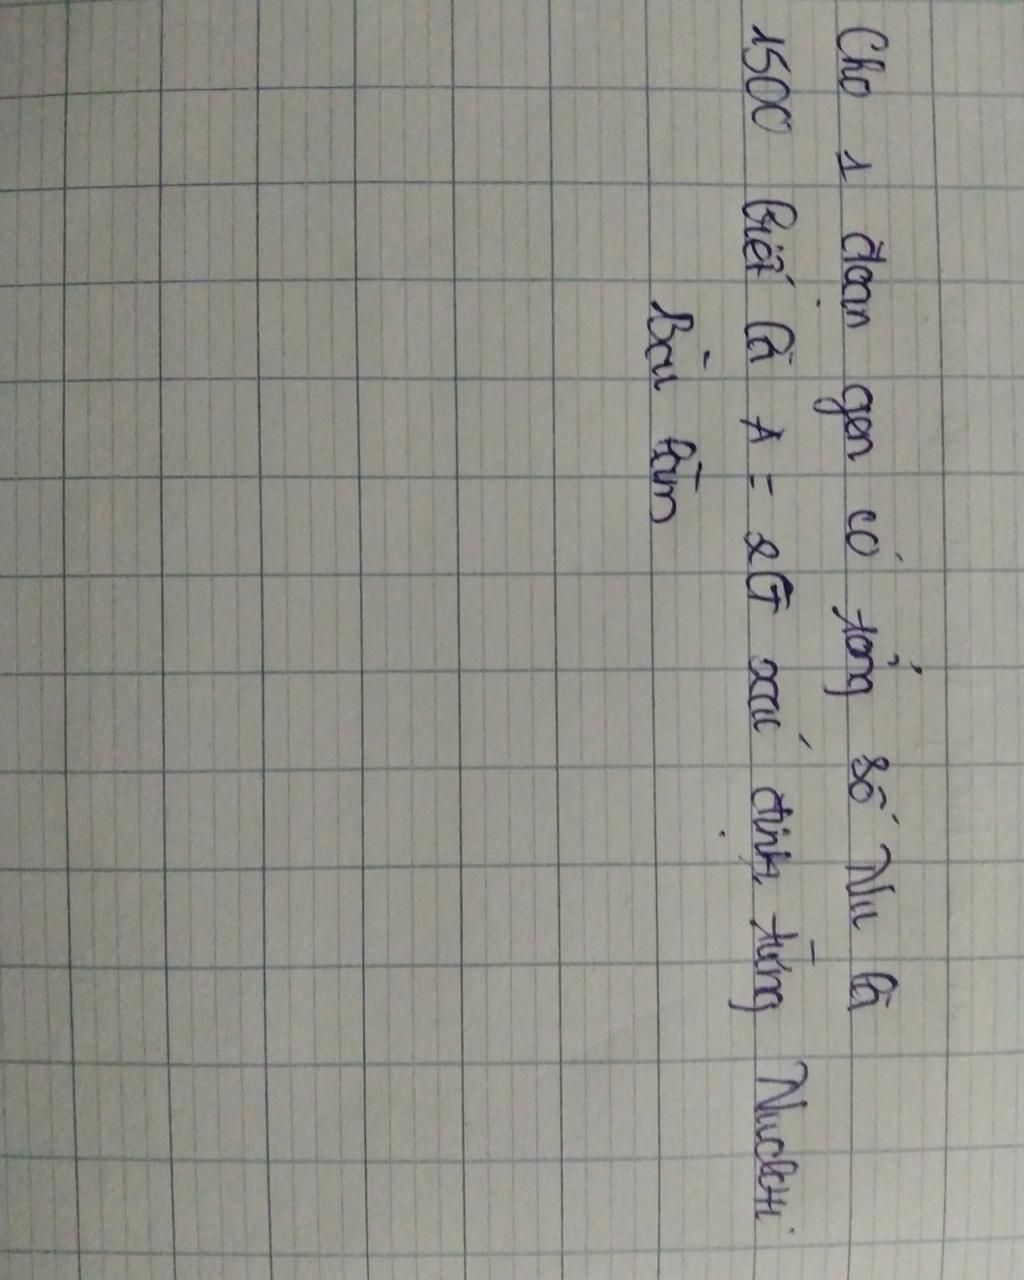 Cho 1 đoạn gen có tổng số Nu là
1500 biết là A = 2G xái định từng Nucloti
Bài làm